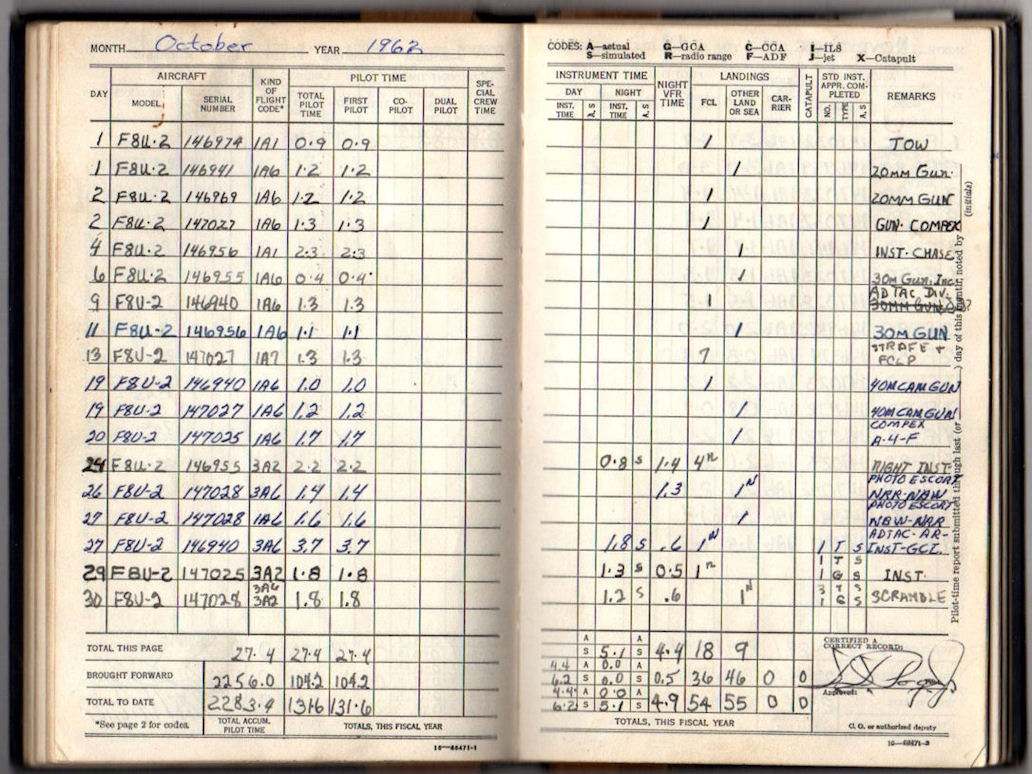 MONTH October YEAR 1962
CODES: A—actual G—GCA C—CCA I—ILS
S—simulated R—radio range F—ADF J—jet X—Catapult
DAY AIRCRAFT MODEL SERIAL NUMBER KIND OF FLIGHT CODE* PILOT TIME TOTAL PILOT TIME FIRST PILOT CO-PILOT DUAL PILOT SPECIAL CREW TIME
INSTRUMENT TIME DAY INST. TIME A, S NIGHT INST. TIME A, S NIGHT VFR TIME LANDINGS FCL OTHER LAND OR SEA CARRIER CATAPULT STD INST. APPR. COMPLETED NO. TYPE A, S REMARKS
1 F8U-2 146974 1A1 0.9 0.9 1 TOW
1 F8U-2 146941 1A6 1.2 1.2 1 20MM GUN.
2 F8U-2 146969 1A6 1.2 1.2 1 20MM GUN
2 F8U-2 147027 1A6 1.3 1.3 1 GUN. COMPEX
4 F8U-2 146956 1A1 2.3 2.3 1 INST. CHASE
6 F8U-2 146955 1A6 0.4 0.4 1 30m Gun. Inc
9 F8U-2 146940 1A6 1.3 1.3 1 ADTAC DIV. 30MM GUN
11 F8U-2 146956 1A6 1.1 1.1 1 30M GUN
13 F8U-2 147027 1A7 1.3 1.3 7 STRAFE + FCLP
19 F8U-2 146940 1A6 1.0 1.0 1 40M CAM GUN
19 F8U-2 147027 1A6 1.2 1.2 1 40M CAM GUN
20 F8U-2 147025 1A6 1.7 1.7 1 COMPEX A-4-F
24 F8U-2 146955 3A2 2.2 2.2 0.8 S 1.4 4N NIGHT INST.
26 F8U-2 147028 3A6 1.4 1.4 1.3 1N PHOTO ESCORT NRR-NBW
27 F8U-2 147028 1A6 1.6 1.6 1 PHOTO ESCORT NBW-NRR
27 F8U-2 146940 3A6 3.7 3.7 1.8 S .6 1N 1 T S ADTAC-AR-INST-GCI.
29 F8U-2 147025 3A2 1.8 1.8 1.3 S 0.5 1N 1 T S 1 G S INST.
30 F8U-2 147028 3A6 3A2 1.8 1.8 1.2 S .6 1N 3 T S 1 G S SCRAMBLE
TOTAL THIS PAGE 27.4 27.4 27.4 A S 5.1 A S 4.4 18 9
BROUGHT FORWARD 2256.0 104.2 104.2 4.4 A 0.0 A 6.2 S 0.0 S 0.5 36 46 0 0
TOTAL TO DATE 2283.4 131.6 131.6 4.4 A 0.0 A 6.2 S 5.1 S 4.9 54 55 0 0
*See page 2 for codes. TOTAL ACCUM. PILOT TIME TOTALS, THIS FISCAL YEAR
TOTALS, THIS FISCAL YEAR
CERTIFIED A CORRECT RECORD:
Approved:
C. O. or authorized deputy
16—68471-1
Pilot-time report submitted through last (or ) day of this month, noted by (initials)